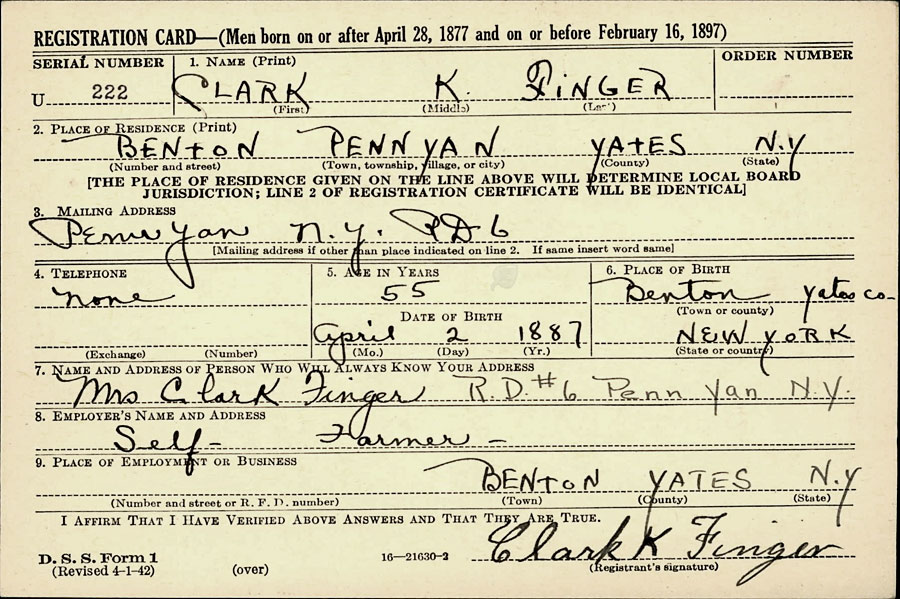 REGISTRATION CARD—(Men born on or after April 28, 1877 and on or before February 16, 1897)
SERIAL NUMBER 1. NAME (Print) ORDER NUMBER
U 222 CLARK K. FINGER
(First) (Middle) (Last)
2. PLACE OF RESIDENCE (Print)
BENTON PENN YAN YATES N.Y
(Number and street) (Town, township, village, or city) (County) (State)
[THE PLACE OF RESIDENCE GIVEN ON THE LINE ABOVE WILL DETERMINE LOCAL BOARD
JURISDICTION; LINE 2 OF REGISTRATION CERTIFICATE WILL BE IDENTICAL]
3. MAILING ADDRESS
Penn Yan N.Y. RD 6
[Mailing address if other than place indicated on line 2. If same insert word same]
4. TELEPHONE 5. AGE IN YEARS 6. PLACE OF BIRTH
none 55 Benton Yates co-
(Town or county)
DATE OF BIRTH
April 2 1887 NEW YORK
(Exchange) (Number) (Mo.) (Day) (Yr.) (State or country)
7. NAME AND ADDRESS OF PERSON WHO WILL ALWAYS KNOW YOUR ADDRESS
Mrs Clark Finger R.D. #6 Penn Yan N.Y.
8. EMPLOYER'S NAME AND ADDRESS
Self- Farmer -
9. PLACE OF EMPLOYMENT OR BUSINESS
BENTON YATES N.Y
(Number and street or R. F. D. number) (Town) (County) (State)
I AFFIRM THAT I HAVE VERIFIED ABOVE ANSWERS AND THAT THEY ARE TRUE.
Clark K Finger
D. S. S. Form 1 16—21630-2
(Revised 4-1-42) (over) (Registrant's signature)